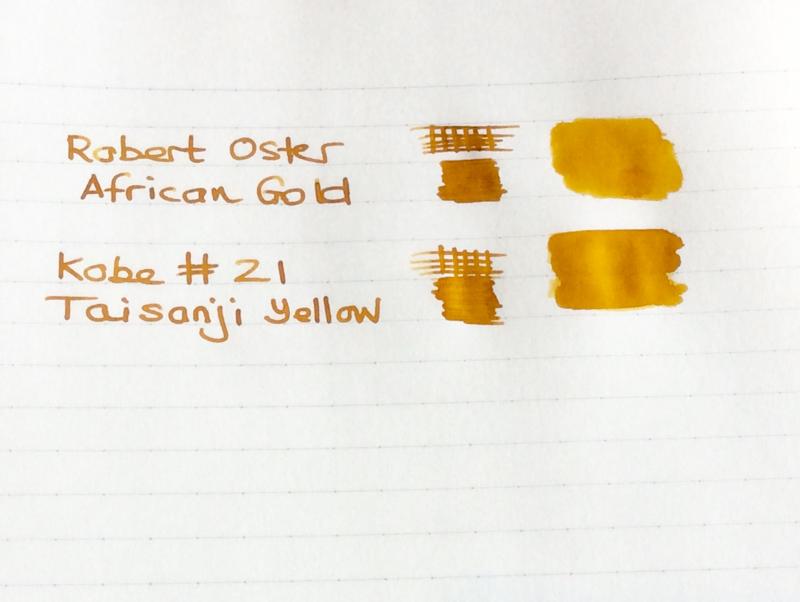 Robert Oster
African Gold
Kobe # 21
Taisanji Yellow